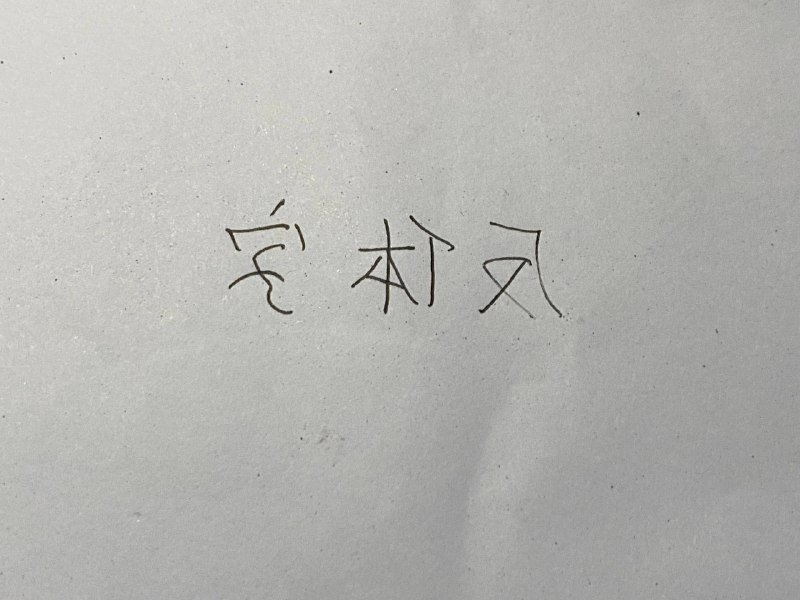 反体字